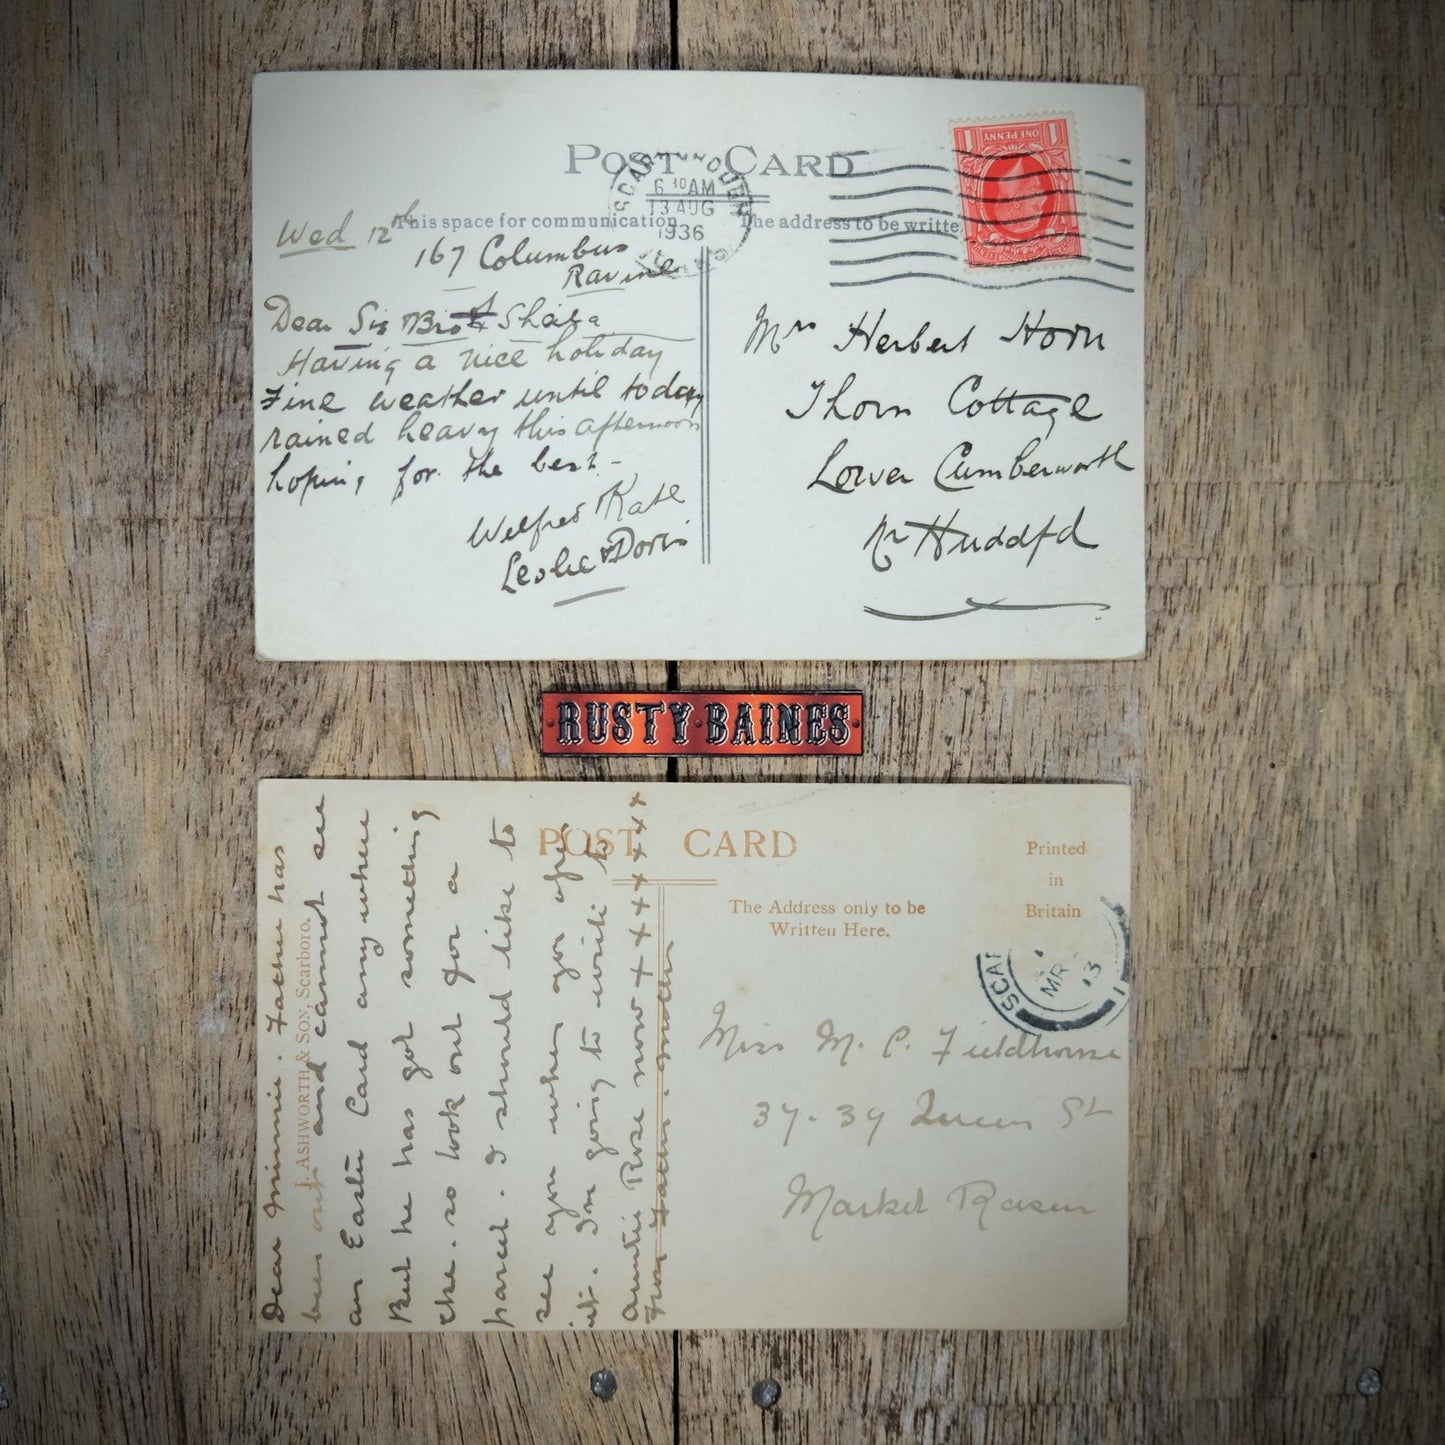 POST CARD
SCARBOROUGH
6 30 AM
13 AUG
1936
ONE PENNY
This space for communication
The address to be writte
Wed 12th
167 Columbus
Ravine
Dear Sis Bro & Sheila
Having a nice holiday
Fine weather until today
rained heavy this afternoon
hoping for the best -
Wilfred Kate
Leslie & Doris
Mrs Herbert Horn
Thorn Cottage
Lower Cumberworth
Nr Huddfd
RUSTY BAINES
POST CARD
Printed
in
Britain
The Address only to be
Written Here.
J. ASHWORTH & SON, Scarboro.
SCAR
MR
13
Dear Minnie. Father has
been out and cannot see
an Easter Card any where
But he has got something
else. so look out for a
parcel. I should like to
see you when you open
it. I'm going to write to
Auntie Rose now + + + + + + + + +
From Father. Mother
Miss M. C. Fieldhouse
37-39 Queen St
Market Rasen